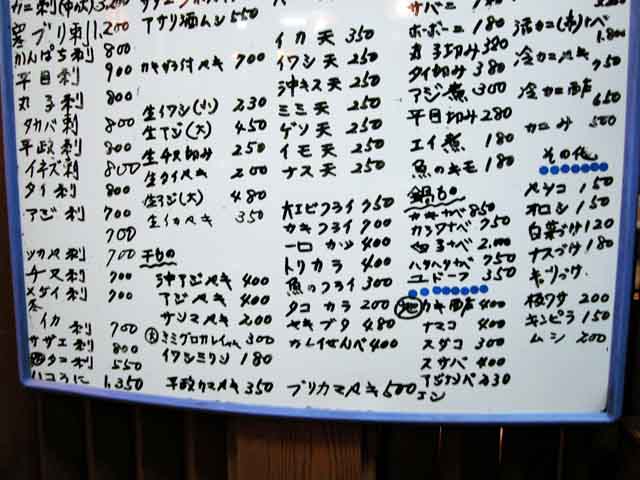 カニ刺(中)3,200
寒ブリ刺1,200
かんぱち刺 800
平目刺 900
丸子刺 800
タカバ刺 800
平政刺 800
イネズ刺 800
タイ刺 800
アジ刺 700
700
ツカベ刺 700
チヌ刺 900
メダイ刺 900
イカ刺 700
サザエ刺 800
タコ刺 550
ハコうに 1,350
アサリ酒ムシ 550
カキずる付ベキ 700
生イワシ(小) 230
生アジ(大) 450
生チヌ切み 250
生タイベキ 200
生アジ(大) 480
生イカベキ 350
干もの
沖アジベキ 400
アジベキ 400
サンマベキ 200
ミミグロカレイ 300
イワシミリン 180
平政カマベキ 350
イカ天 350
イワシ天 250
沖キス天 250
ミミ天 250
ゲソ天 250
イモ天 250
ナス天 250
大エビフライ 950
カキフライ 900
一口カツ 400
トリカラ 400
魚のフライ 300
タコカラ 200
ヤキブタ 480
カレイせんべ 400
ブリカマベキ 500
サバニ
ホーボーニ 180
丸子切み 380
タイ切み 380
アジ煮 300
平目切み 280
エイ煮 180
魚のキモ 180
鍋もの
カキナベ 850
カワナベ 950
ナベ 2,000
ハタハタナベ 750
ユドーフ 350
地 カキ酢 400
ナマコ 400
スダコ 300
スサバ 400
アジナンベ 230
活カニ(中)ナベ 1,800
冷カニベキ 750
冷カニ酢 650
カニみ 500
その他
ベツコ 150
オロシ 150
白菜づけ 120
ナスづけ 180
キュリづけ
板ワサ 200
キンピラ 150
ムシ 200